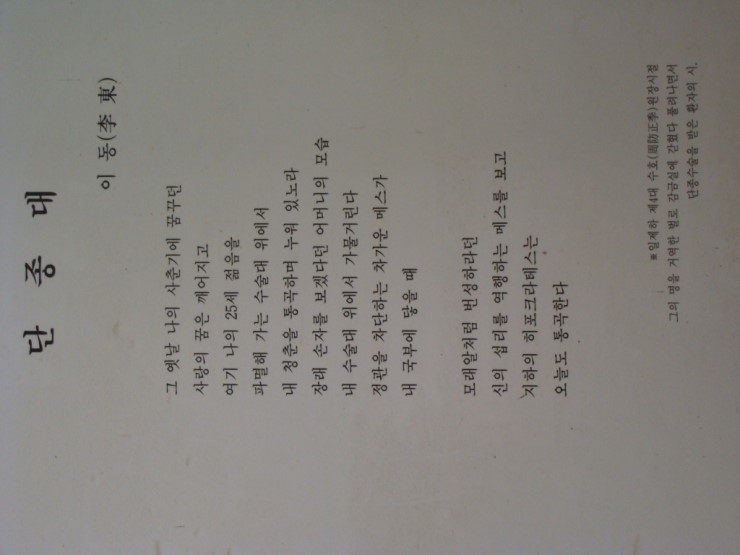 단 종 대
이 동(李 東)
그 옛날 나의 사춘기에 꿈꾸던
사랑의 꿈은 깨어지고
여기 나의 25세 젊음을
파멸해 가는 수술대 위에서
내 청춘을 통곡하며 누워 있노라
장래 손자를 보겠다던 어머니의 모습
내 수술대 위에서 가물거린다
정관을 차단하는 차가운 메스가
내 국부에 닿을 때
모래알처럼 번성하라던
신의 섭리를 역행하는 메스를 보고
지하의 히포크라테스는
오늘도 통곡한다
※일제하 제4대 수호(周防正季)원장시절
그의 명을 거역한 벌로 감금실에 갇혔다 풀려나면서
단종수술을 받은 환자의 시.